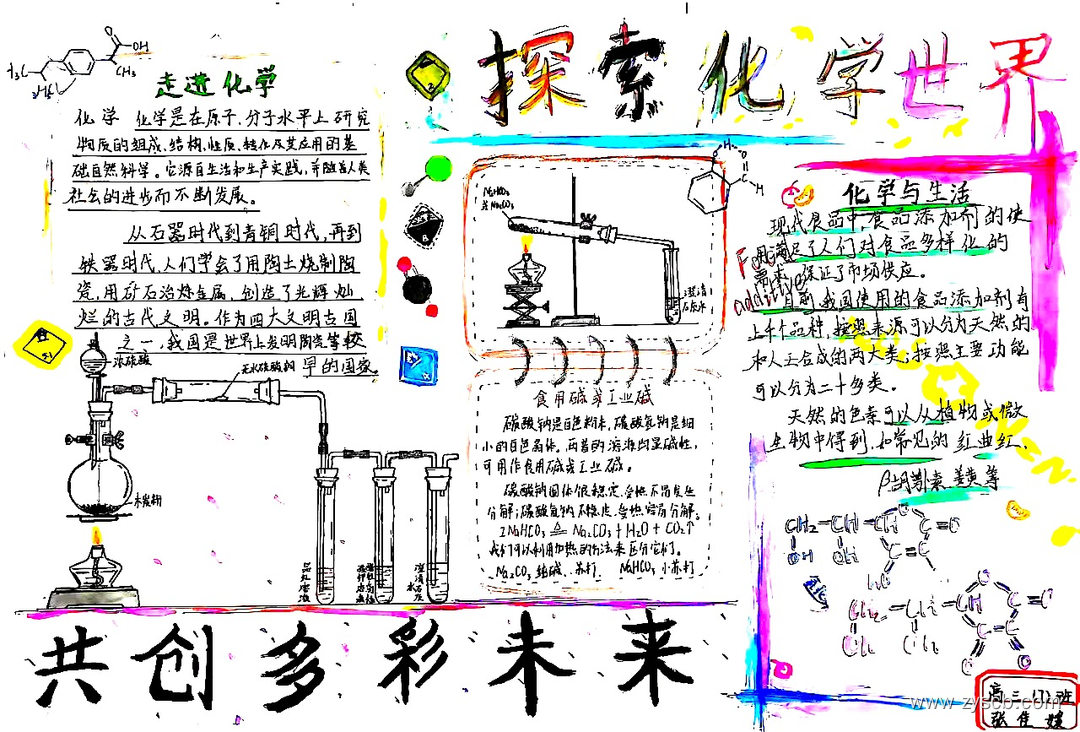 探索化学世界
走进化学
化学 化学是在原子、分子水平上研究
物质的组成、结构、性质、转化及其应用的基
础自然科学。它源自生活和生产实践,并随着人类
社会的进步而不断发展。
从石器时代到青铜时代,再到
铁器时代,人们学会了用陶土烧制陶
瓷,用矿石冶炼金属,创造了光辉灿
烂的古代文明。作为四大文明古国
之一,我国是世界上发明陶瓷等较
早的国家
OH
O
CH₃
H₃C
浓硫酸
无水硫酸铜
木炭粉
品红溶液
澄清石灰水
NaHCO₃
或Na₂CO₃
澄清
石灰水
食用碱与工业碱
碳酸钠是白色粉末,碳酸氢钠是细
小的白色晶体。两者的溶液均显碱性,
可用作食用碱或工业碱。
碳酸钠固体很稳定,受热不易发生
分解;碳酸氢钠不稳定,受热容易分解。
2NaHCO₃ ≜ Na₂CO₃+H₂O+CO₂↑
我们可以利用加热的方法来区分它们。
Na₂CO₃ 纯碱、苏打 NaHCO₃ 小苏打
化学与生活
现代食品中,食品添加剂的使
用满足了人们对食品多样化的
需求,保证了市场供应。
Food
additive
目前,我国使用的食品添加剂有
上千个品种,按照来源可以分为天然的
和人工合成的两大类;按照主要功能
可以分为二十多类。
天然的色素可以从植物或微
生物中得到,如常见的红曲红、
β-胡萝卜素、姜黄等
CH₂ CH CH O C O
OH OH
共创多彩未来
高二(7)班
张佳媛
www.zyscb.com